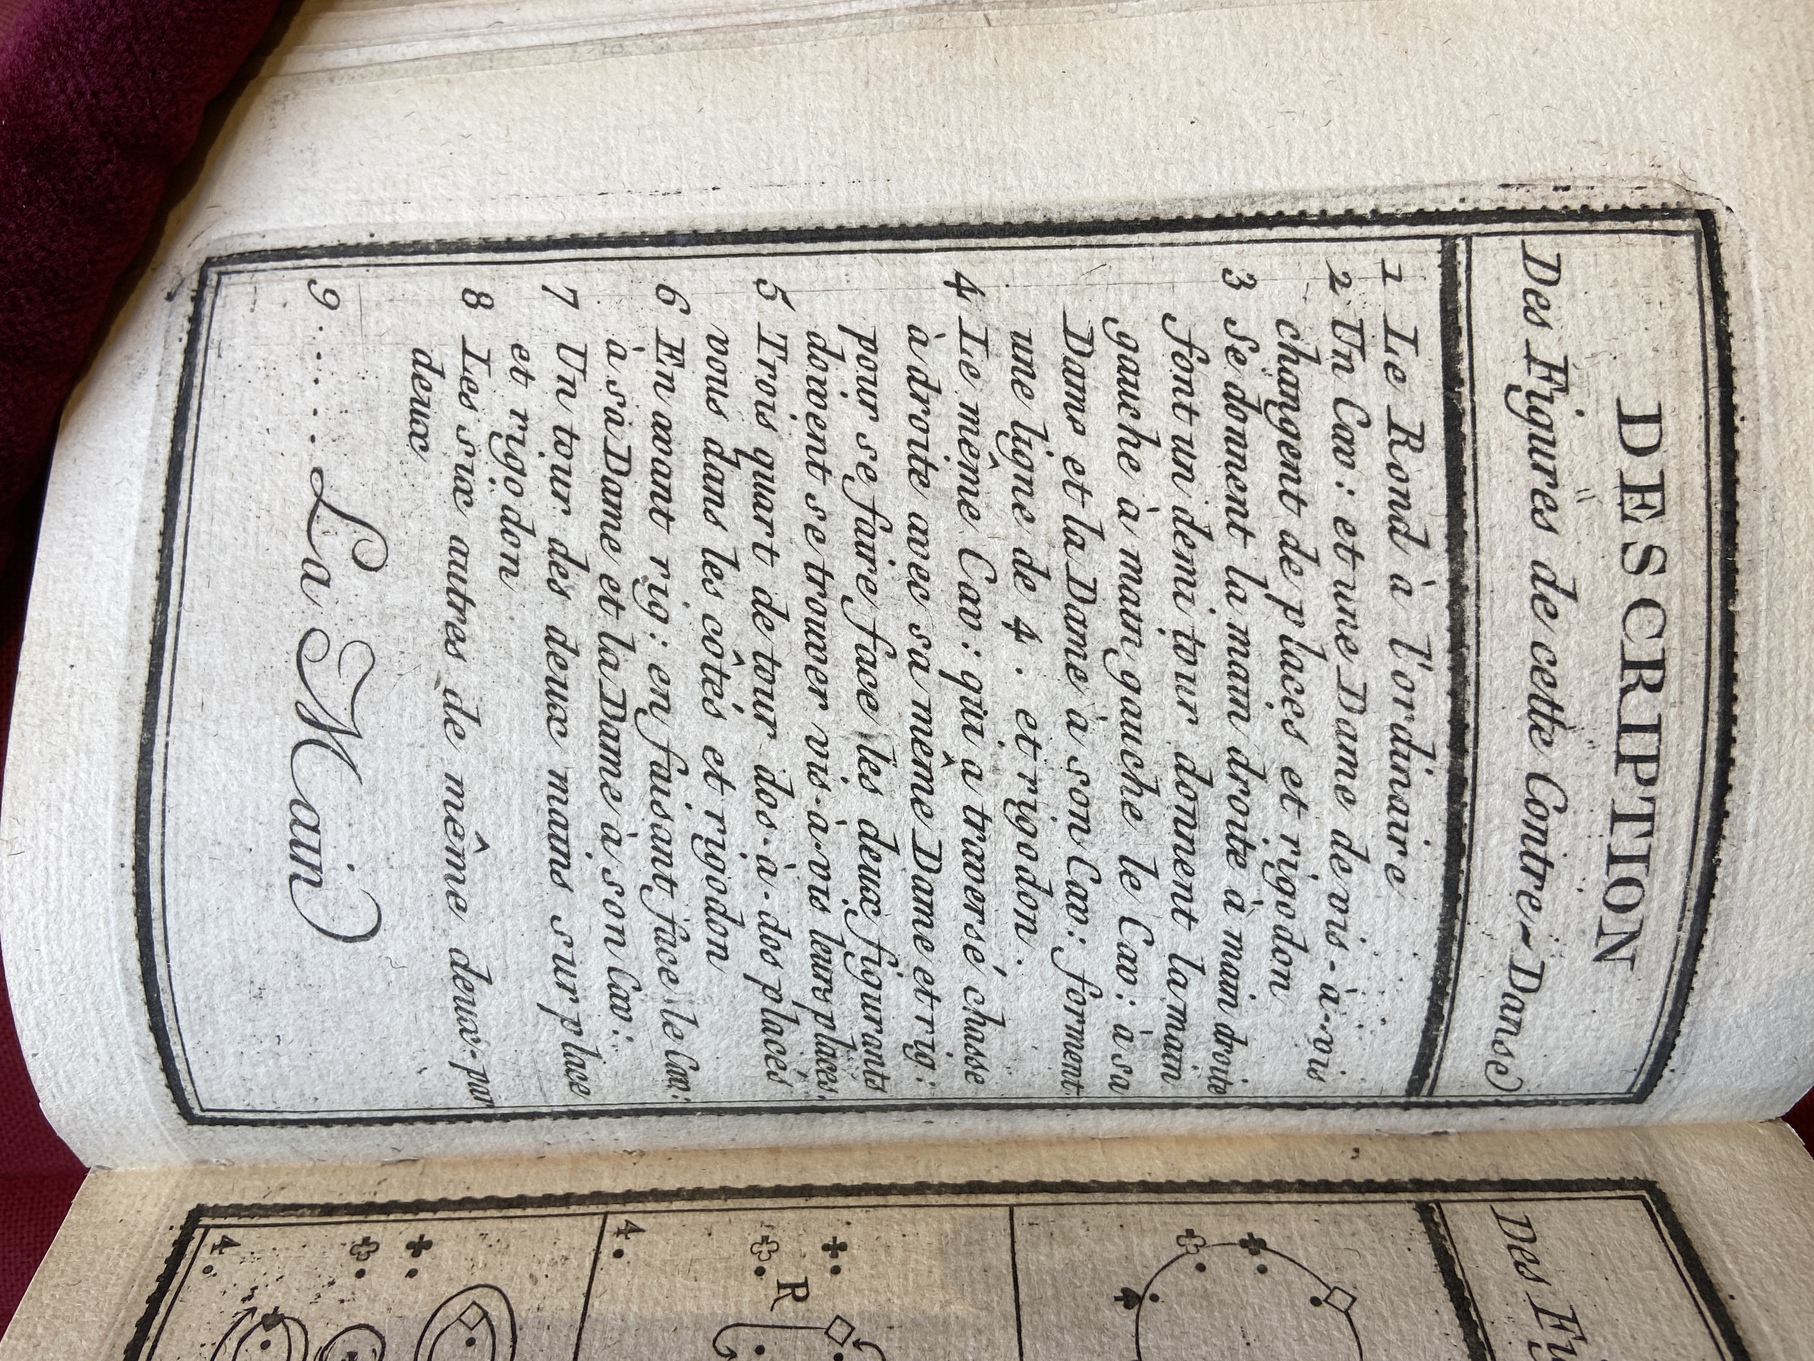 DESCRIPTION
Des Figures de cette Contre-Danse
1 Le Rond à l'ordinaire
2 Un Cav: et une Dame de vis-à-vis
changent de places et rigodon
3 Se donnent la main droite à main droite
font un demi tour donnent la main
gauche à main gauche le Cav: à sa
Dame et la Dame à son Cav: forment
une ligne de 4. et rigodon.
4 Le même Cav: qui a traversé chasse
à droite avec sa même Dame et rig:
pour se faire face les deux figurants
doivent se trouver vis-à-vis leurs places.
5 Trois quart de tour dos-à-dos places
vous dans les côtés et rigodon
6 En avant rig: en faisant face le Cav:
à sa Dame et la Dame à son Cav:
7 Un tour des deux mains sur place
et rigodon
8 Les six autres de même deux-par
deux
9.... La Main
Des Fi
4.
R
4.